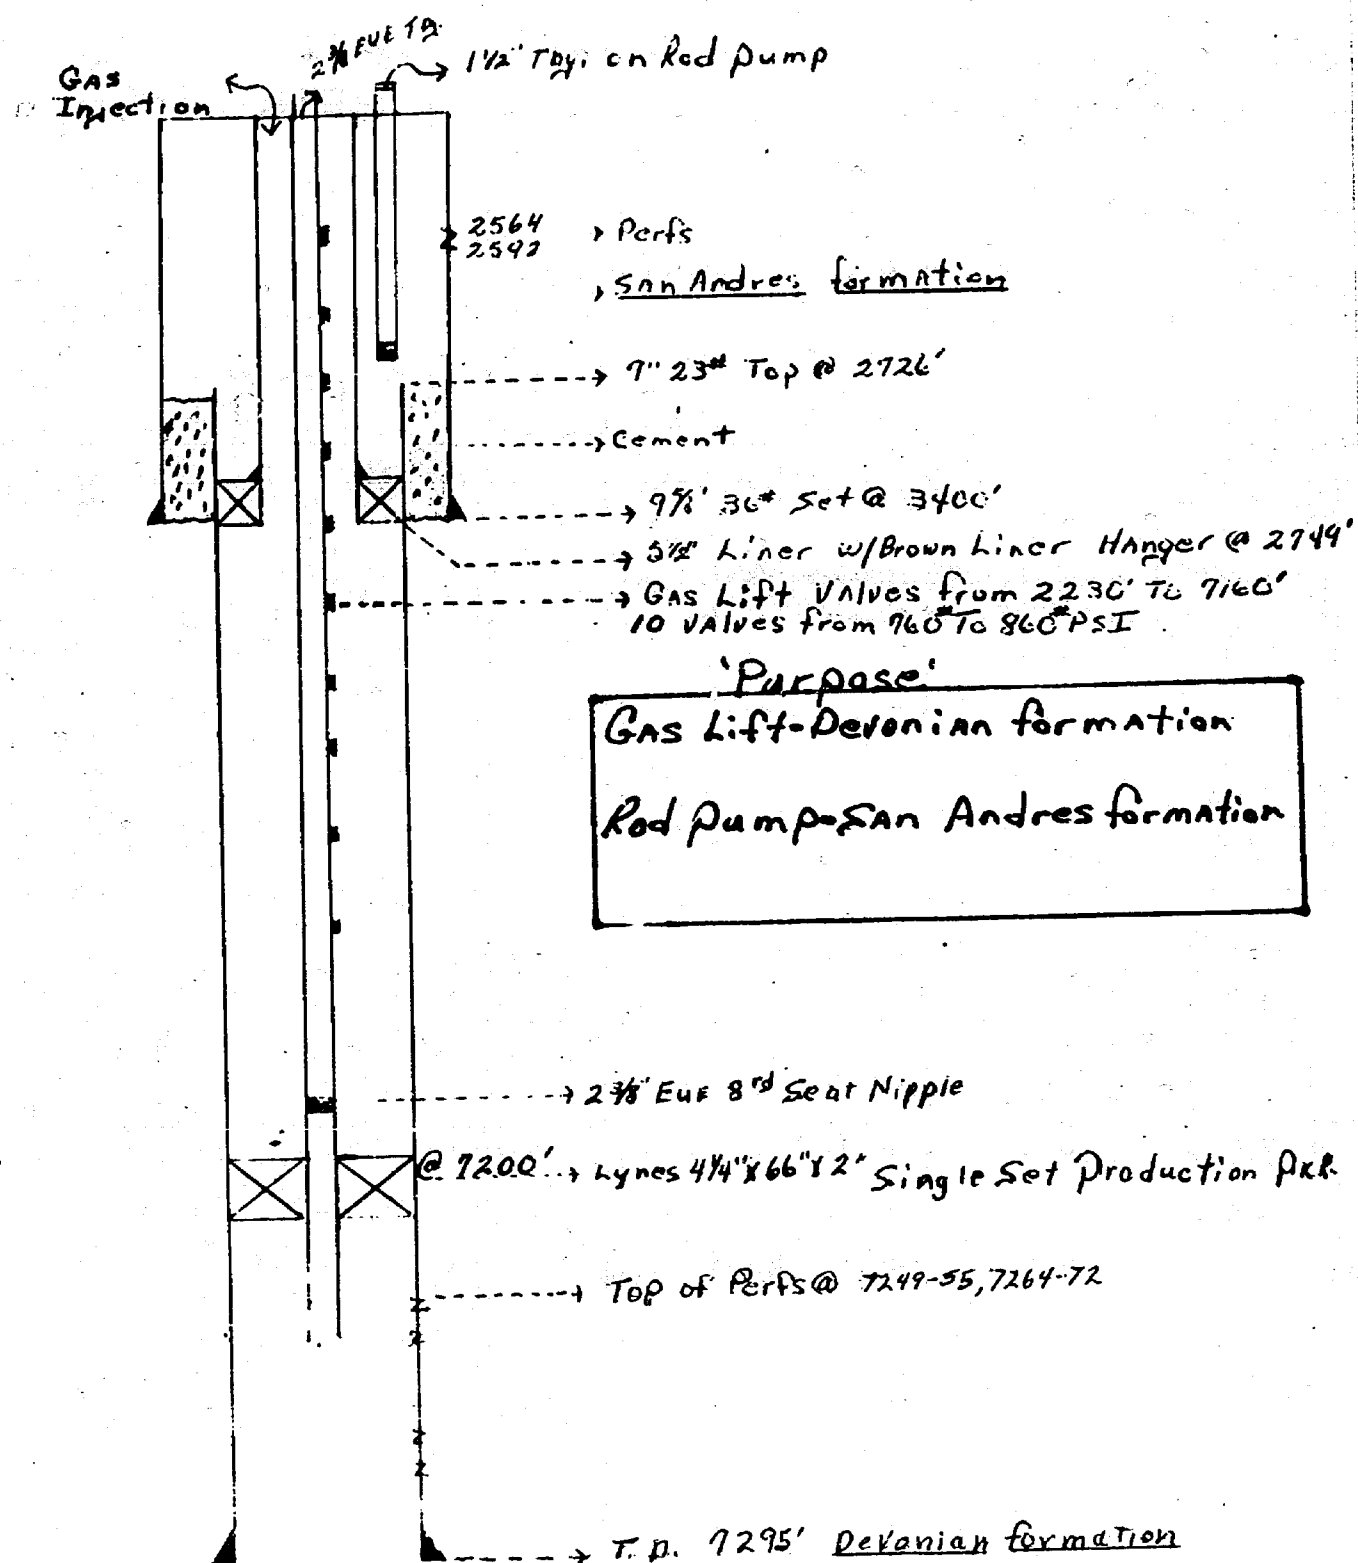 GAS
Injection
2 3/8 EUE TB.
1 1/2" Tbg. on Rod Pump
2564
2592
Perfs
San Andres formation
7" 23# Top @ 2726'
Cement
9 5/8" 36# Set @ 3400'
5 1/2" Liner w/Brown Liner Hanger @ 2749'
GAS Lift Valves from 2230' To 7160'
10 Valves from 760# To 860# PSI
'Purpose'
GAS Lift-Devonian formation
Rod Pump-San Andres formation
2 3/8" EUE 8rd Seat Nipple
@ 7200' Lynes 4 1/4" X 66" X 2" Single Set Production Pkr.
Top of Perfs @ 7249-55, 7264-72
T.D. 7295' Devonian formation